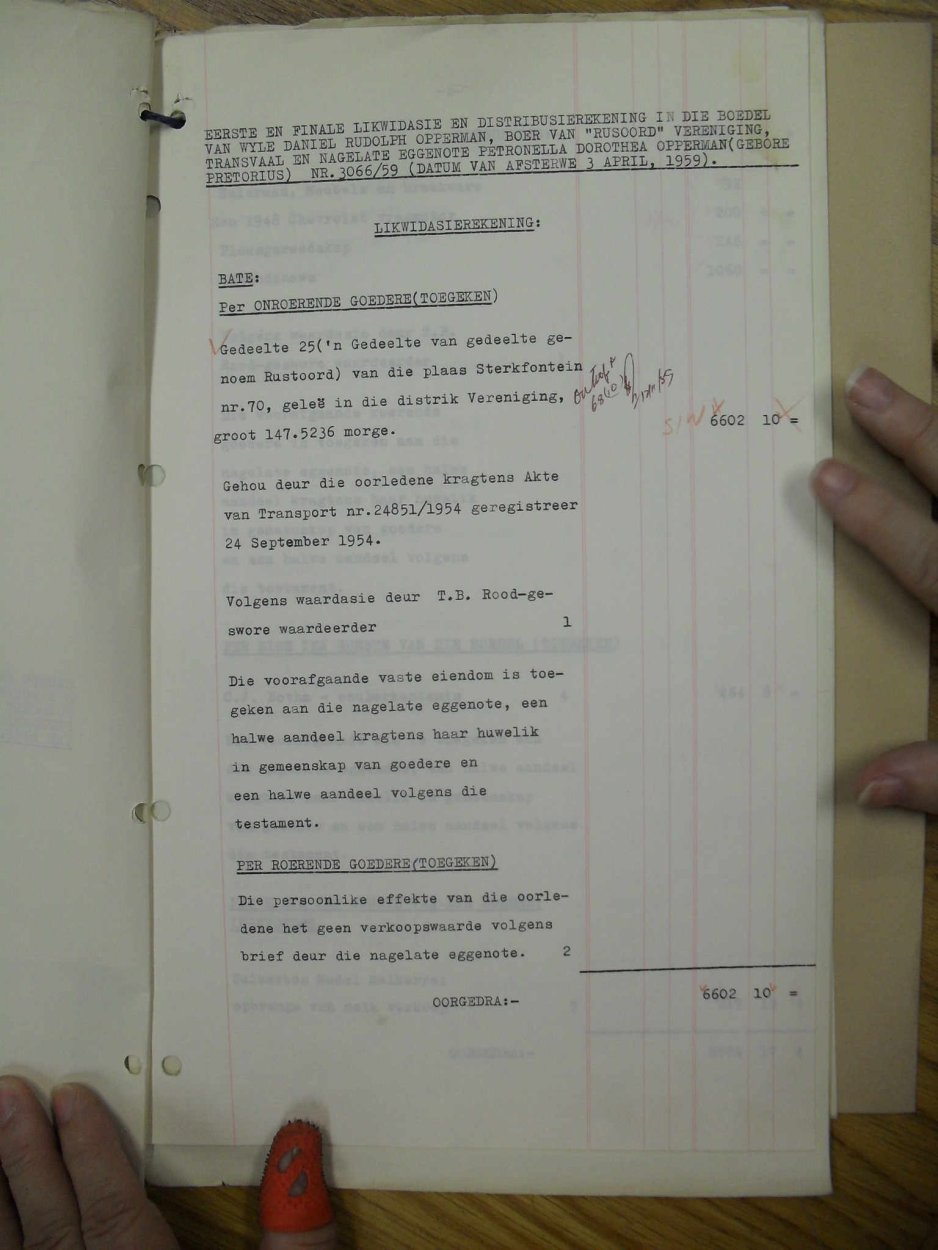 EERSTE EN FINALE LIKWIDASIE EN DISTRIBUSIEREKENING IN DIE BOEDEL
VAN WYLE DANIEL RUDOLPH OPPERMAN, BOER VAN "RUSOORD" VERENIGING,
TRANSVAAL EN NAGELATE EGGENOTE PETRONELLA DOROTHEA OPPERMAN(GEBORE
PRETORIUS) NR.3066/59 (DATUM VAN AFSTERWE 3 APRIL, 1959).
LIKWIDASIEREKENING:
BATE:
Per ONROERENDE GOEDERE(TOEGEKEN)
Gedeelte 25('n Gedeelte van gedeelte ge-
noem Rustoord) van die plaas Sterkfontein
nr.70, geleë in die distrik Vereniging,
groot 147.5236 morge.
6602 10 =
Gehou deur die oorledene kragtens Akte
van Transport nr.24851/1954 geregistreer
24 September 1954.
Volgens waardasie deur T.B. Rood-ge-
swore waardeerder 1
Die voorafgaande vaste eiendom is toe-
geken aan die nagelate eggenote, een
halwe aandeel kragtens haar huwelik
in gemeenskap van goedere en
een halwe aandeel volgens die
testament.
PER ROERENDE GOEDERE(TOEGEKEN)
Die persoonlike effekte van die oorle-
dene het geen verkoopswaarde volgens
brief deur die nagelate eggenote. 2
OORGEDRA:- 6602 10 =